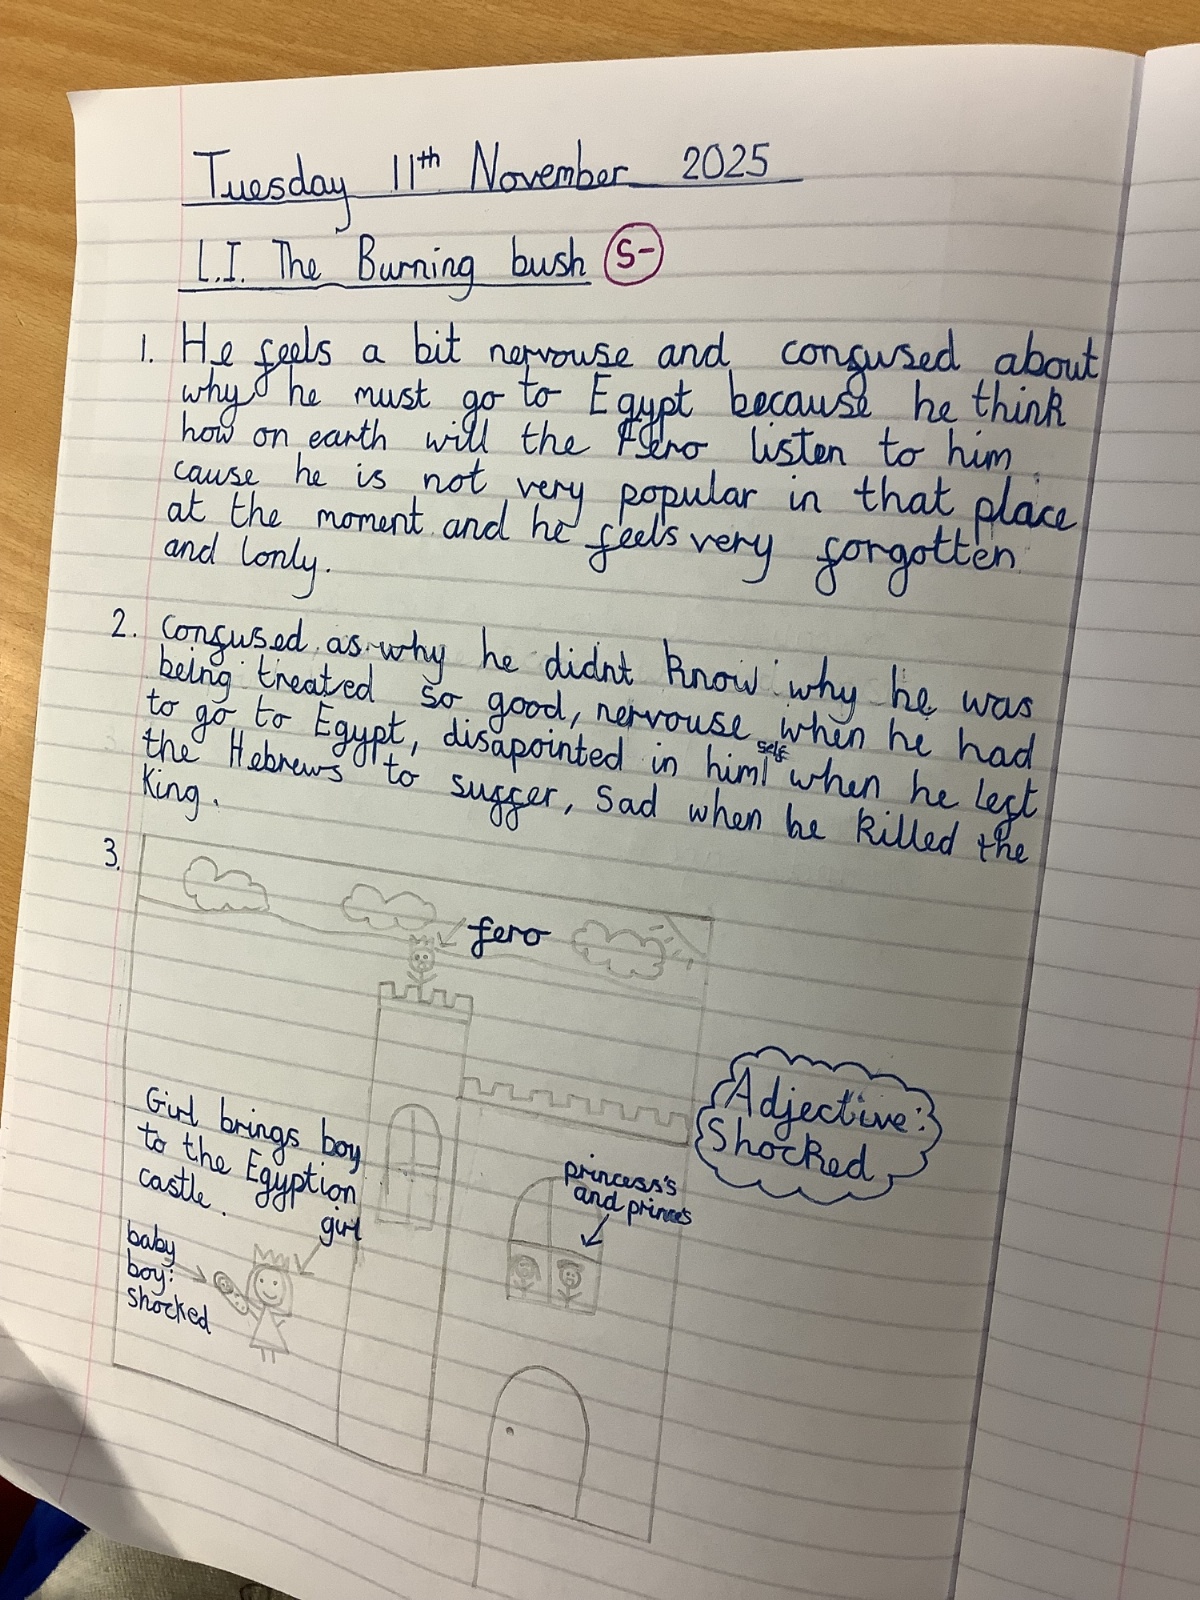 Tuesday 11th November 2025
L.I. The Burning bush S-
1. He feels a bit nervouse and confused about
why he must go to Egypt because he think
how on earth will the Fero listen to him
cause he is not very popular in that place
at the moment and he feels very forgotten
and lonly.
2. Confused as why he didnt know why he was
being treated so good, nervouse when he had
to go to Egypt, disapointed in him self when he left
the Hebrews to suffer, Sad when he killed the
King.
3.
fero
Adjective:
Shocked
Girl brings boy
to the Egyption
castle.
princess's
and princes
girl
baby
boy:
shocked